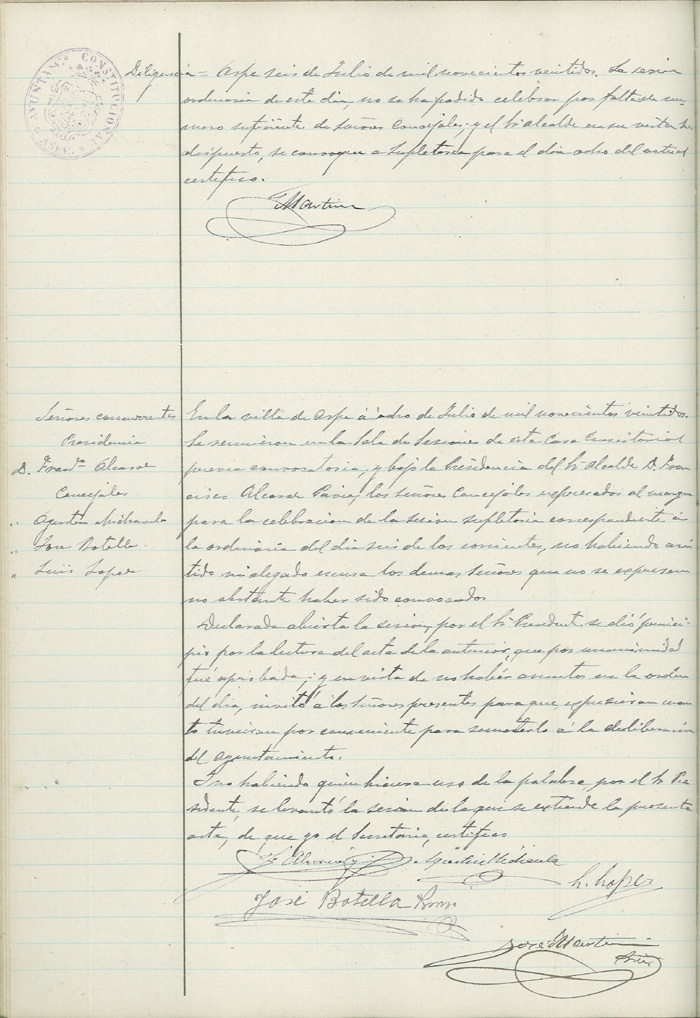 AYUNTAMTO CONSTITUCIONAL
ASPE
Diligencia = Aspe seis de Julio de mil novecientos veintidos. La sesion
ordinaria de este dia, no se ha podido celebrar por falta de nu-
mero suficiente de señores Concejales y el Sr. Alcalde en su vista ha
dispuesto, se convoque a supletoria para el dia ocho del actual
certifico.
Martin
Señores concurrentes
Presidencia
D. Franco Alcaraz
Concejales
" Agustin Miralles
" Jose Botella
" Luis Lopez
En la villa de Aspe á ocho de Julio de mil novecientos veintidos.
Se reunieron en la Sala de Sesiones de esta Casa Consistorial
previa convocatoria, y bajo la Presidencia del Sr. Alcalde D. Fran-
cisco Alcaraz los señores Concejales expresados al margen
para la celebracion de la sesion supletoria correspondiente á
la ordinaria del dia seis de los corrientes, no habiendo asis-
tido ni alegado escusa los demas señores que no se expresan
no obstante haber sido convocados.
Declarada abierta la sesion, por el Sr. Presidente se dió princi-
pio por la lectura del acta de la anterior, que por unanimidad
fué aprobada; y en vista de no haber asuntos en la orden
del dia, invitó á los señores presentes para que, expusieran cuan-
to tuvieran por conveniente para someterlo á la deliberación
del ayuntamiento.
I no habiendo quien hiciera uso de la palabra, por el Sr. Pre-
sidente, se levantó la sesion de la que se extiende la presente
acta, de que yo el Secretario, certifico
F. Alcaraz
Agustin
L. Lopez
José Botella
José Martin
Srio